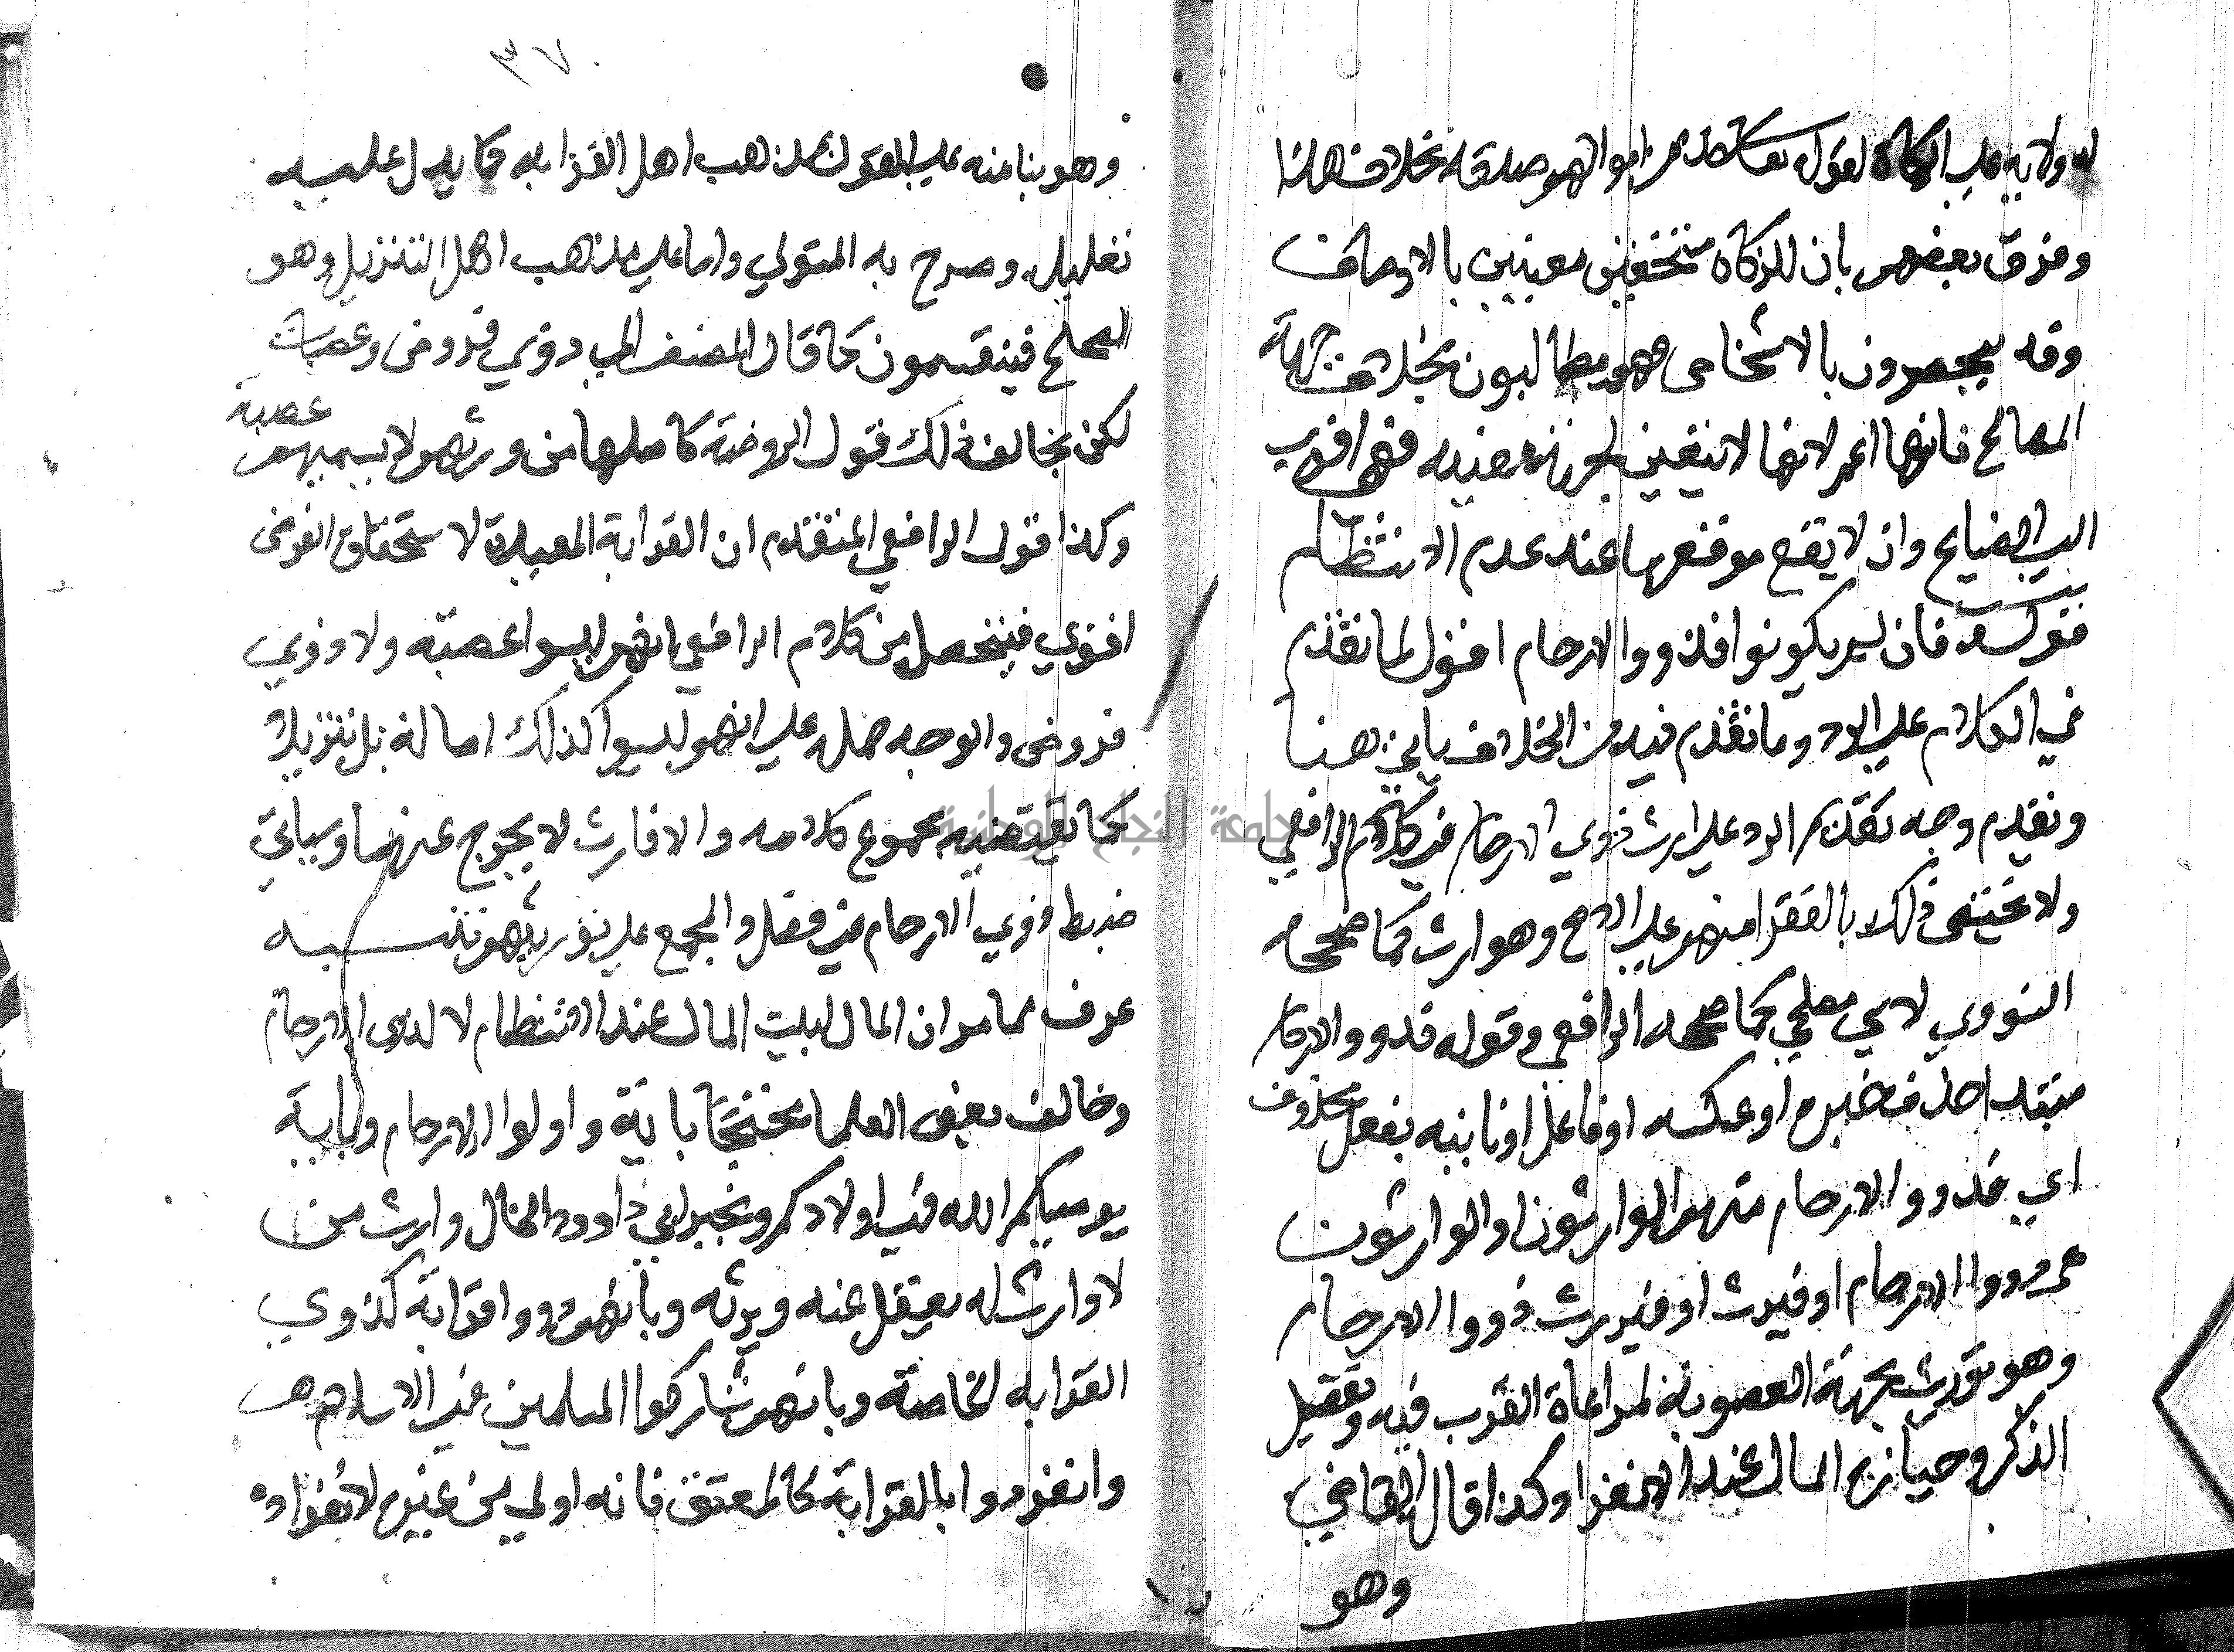 له ولاية على الزكاة لقوله تعالى خذ من اموالهم صدقة بخلاف هذا
وفرق بعضهم بان للزكاة مستحقين معينين بالاوصاف
وقد يحصرون بالاشخاص فهم مطالبون بخلاف جهة
المصالح فانها اعم لانها لا تتعين لجهة معينة فهي اقرب
الى الضياع وان لا يقع موقعها عند عدم الانتظام
قوله فان لم يكونوا فذووا الارحام اقول لما تقدم
في الكلام على الرد وما تقدم فيه من الخلاف ياتي هنا
وتقدم وجه تقديم الرد على ارث ذوي الارحام في كلام الرافعي
ولا يختص ذلك بالفقرا منهم على الاصح وهو ارث كما صححه
النووي لا شي مصلحي كما صححه الرافعي وقوله فذووا الارحام
مبتدا حذف خبره او عكسه او فاعل او نايبه بفعل محذوف
اي فذووا الارحام منهم الوارثون او الوارثون
هم ذووا الارحام او فيرث او فيورث ذووا الارحام
وهو توريث بجهة العصوبة لمراعاة القرب فيه وتفضيل
الذكر وحيازة المال عند الانفراد وكذا قال القاضي
وهو
٣٧
وهو بنا منه على القول بمذهب اهل القرابه كما يدل عليه
تعليله وصرح به المتولي واما على مذهب اهل التنزيل وهو
الصحيح فينقسمون كما قال المصنف الى ذوي فروض وعصبات
لكن يخالف ذلك قول الروضة كاصلها من ورثهم لا يسميهم عصبة
وكذا قول الرافعي المتقدم ان القرابة المفيدة لاستحقاق الفرض
اقوي فيتحصل من كلام الرافعي انهم ليسوا عصبه ولا ذوي
فروض والوجه حمله على انهم ليسوا كذلك اصالة بل تنزيلا
كما يقتضيه مجموع كلامه والاقارب لا يخرج عنهما وسياتي
ضبط ذوي الارحام في فصل والجمع على توريثهم تنبيه
عرف مما مر ان المال لبيت المال عند الانتظام لا لذوي الارحام
وخالف بعض العلما محتجا باية واولوا الارحام وباية
يوصيكم الله في اولادكم وبخبر ابي داود الخال وارث من
لا وارث له يعقل عنه ويرثه وبانهم ذووا قرابة كذوي
القرابه الخاصة وبانهم شاركوا المسلمين في الاسلام
وانفردوا بالقرابة كالمعتق فانه اولي من غيره لانفراده
جامعة النجاح الوطنية